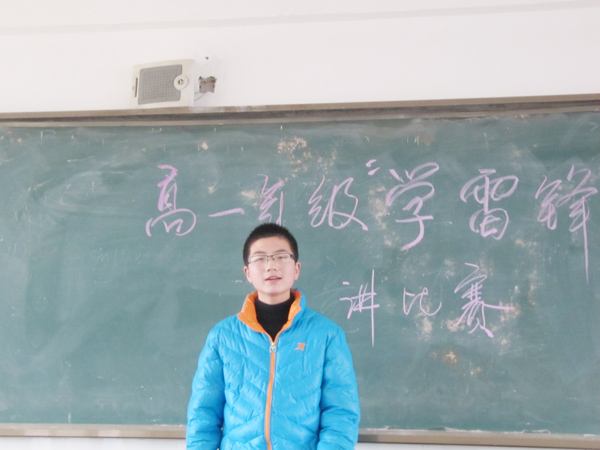 高一年级“学雷锋
讲比赛